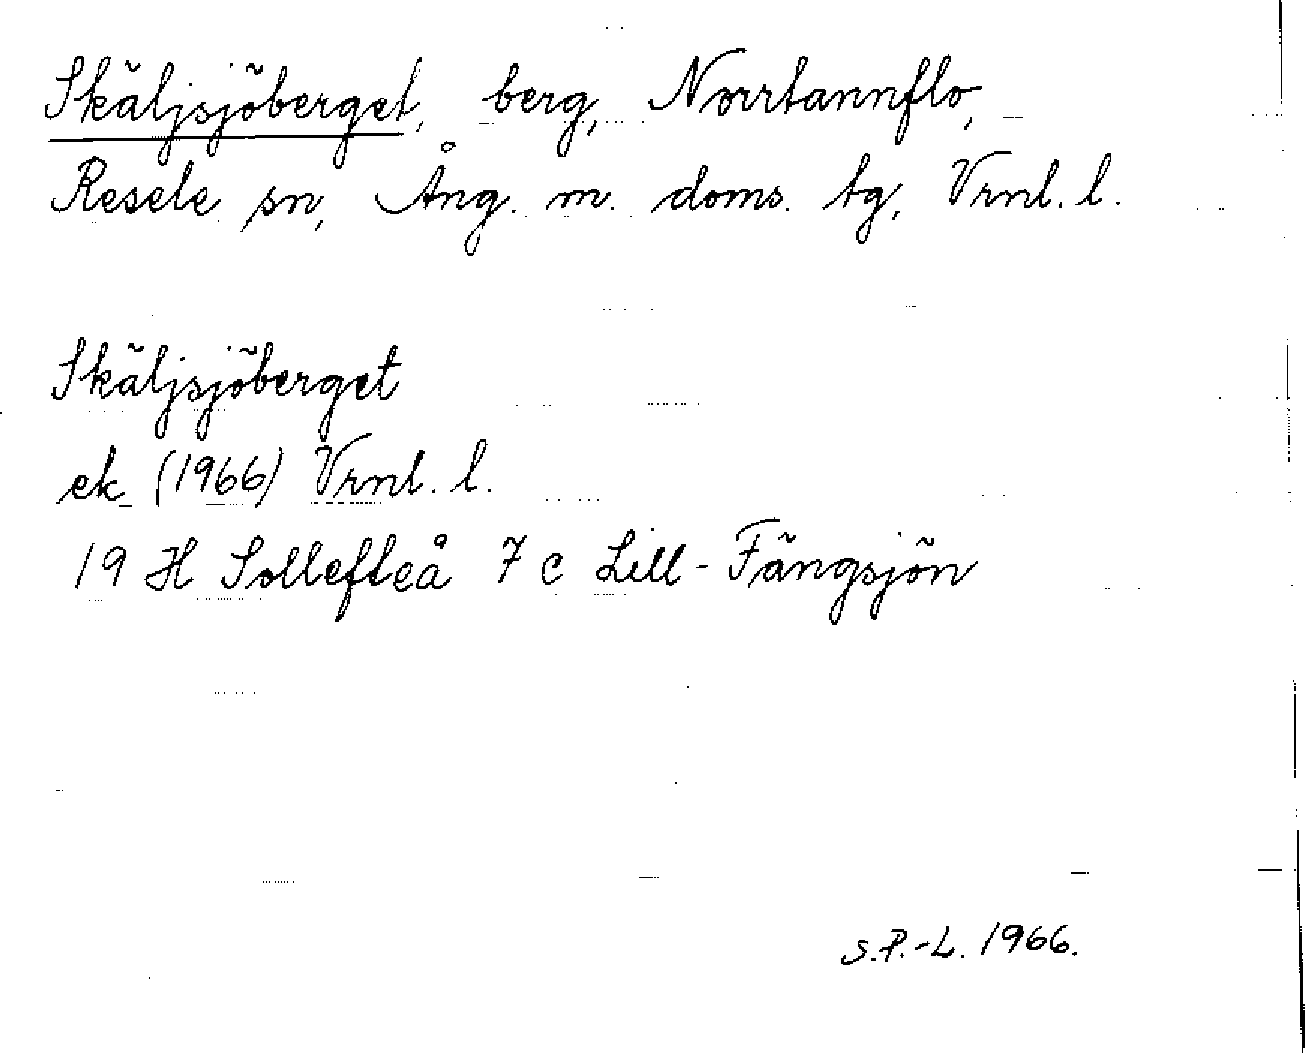 Skäljsjöberget, berg, Norrtannflo,
Resele sn, Ång. m. doms. tg, Vrnl. l.
Skäljsjöberget
ek (1966) Vrnl. l.
19 H Sollefteå 7 c Lill-Fängsjön
S.P.-L. 1966.